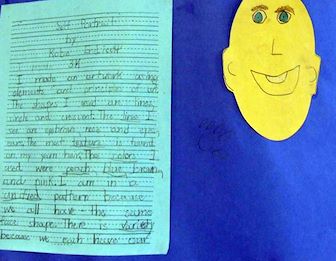 Self Portrait
by
3H
I made an artwork using
elements and principles of art.
The shapes I used are lines,
circle and crescent. The lines I
see are eyebrow, nose and eyes,
ears. The most texture is found
on my yarn hair. The colors I
used were peach, blue, brown,
and pink. I am in a
unified pattern because
we all have the same
face shape. There is variety
because we each have our